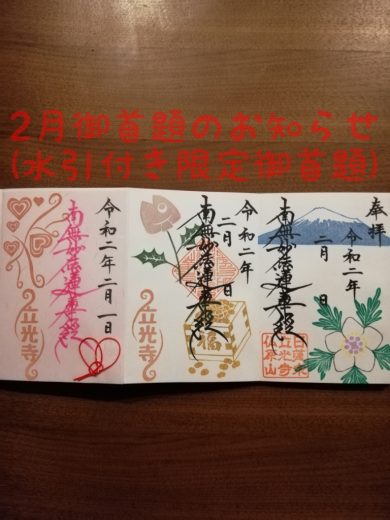 2月御首題のお知らせ
(水引付き限定御首題)
奉拝
令和二年
二月 日
南無妙法蓮華経
日蓮宗
立光寺
令和二年
二月 日
南無妙法蓮華経
福
立光寺
令和二年二月一日
南無妙法蓮華経
立光寺